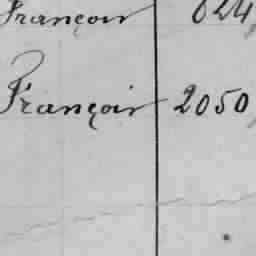 François 624,
François 2050,